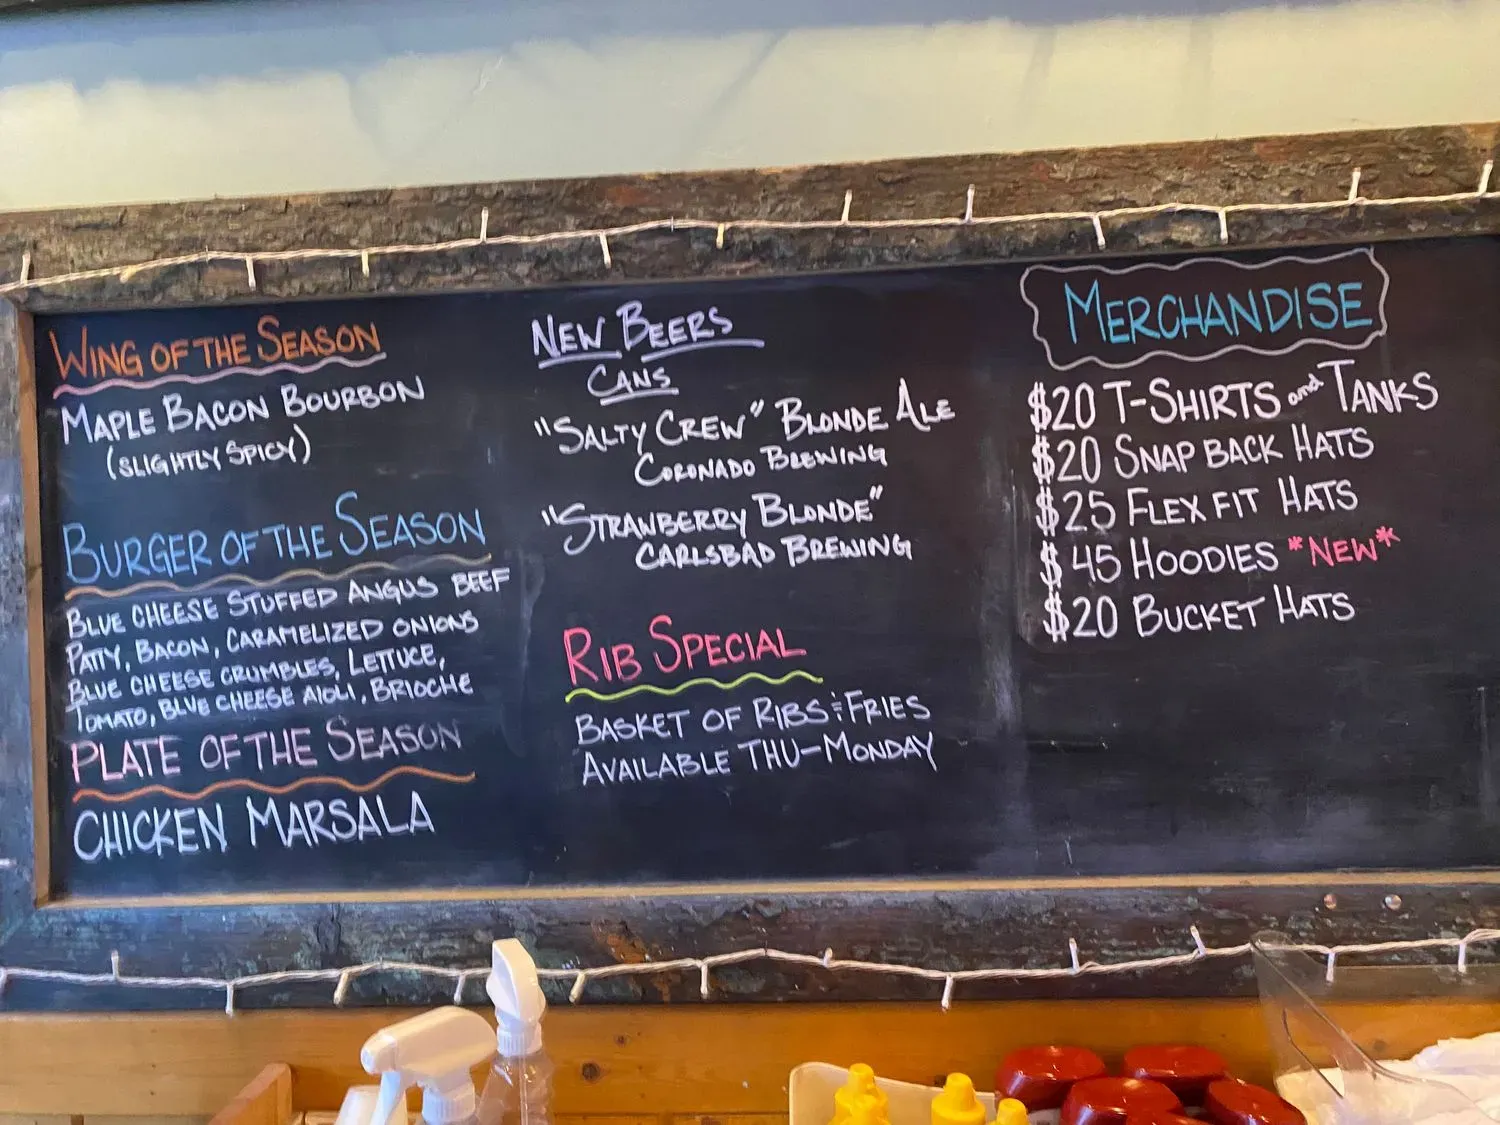 WING OF THE SEASON
MAPLE BACON BOURBON
(SLIGHTLY SPICY)
BURGER OF THE SEASON
BLUE CHEESE STUFFED ANGUS BEEF
PATTY, BACON, CARAMELIZED ONIONS
BLUE CHEESE CRUMBLES, LETTUCE,
TOMATO, BLUE CHEESE AIOLI, BRIOCHE
PLATE OF THE SEASON
CHICKEN MARSALA
NEW BEERS
CANS
"SALTY CREW" BLONDE ALE
CORONADO BREWING
"STRAWBERRY BLONDE"
CARLSBAD BREWING
RIB SPECIAL
BASKET OF RIBS & FRIES
AVAILABLE THU-MONDAY
MERCHANDISE
$20 T-SHIRTS and TANKS
$20 SNAP BACK HATS
$25 FLEX FIT HATS
$45 HOODIES *NEW*
$20 BUCKET HATS